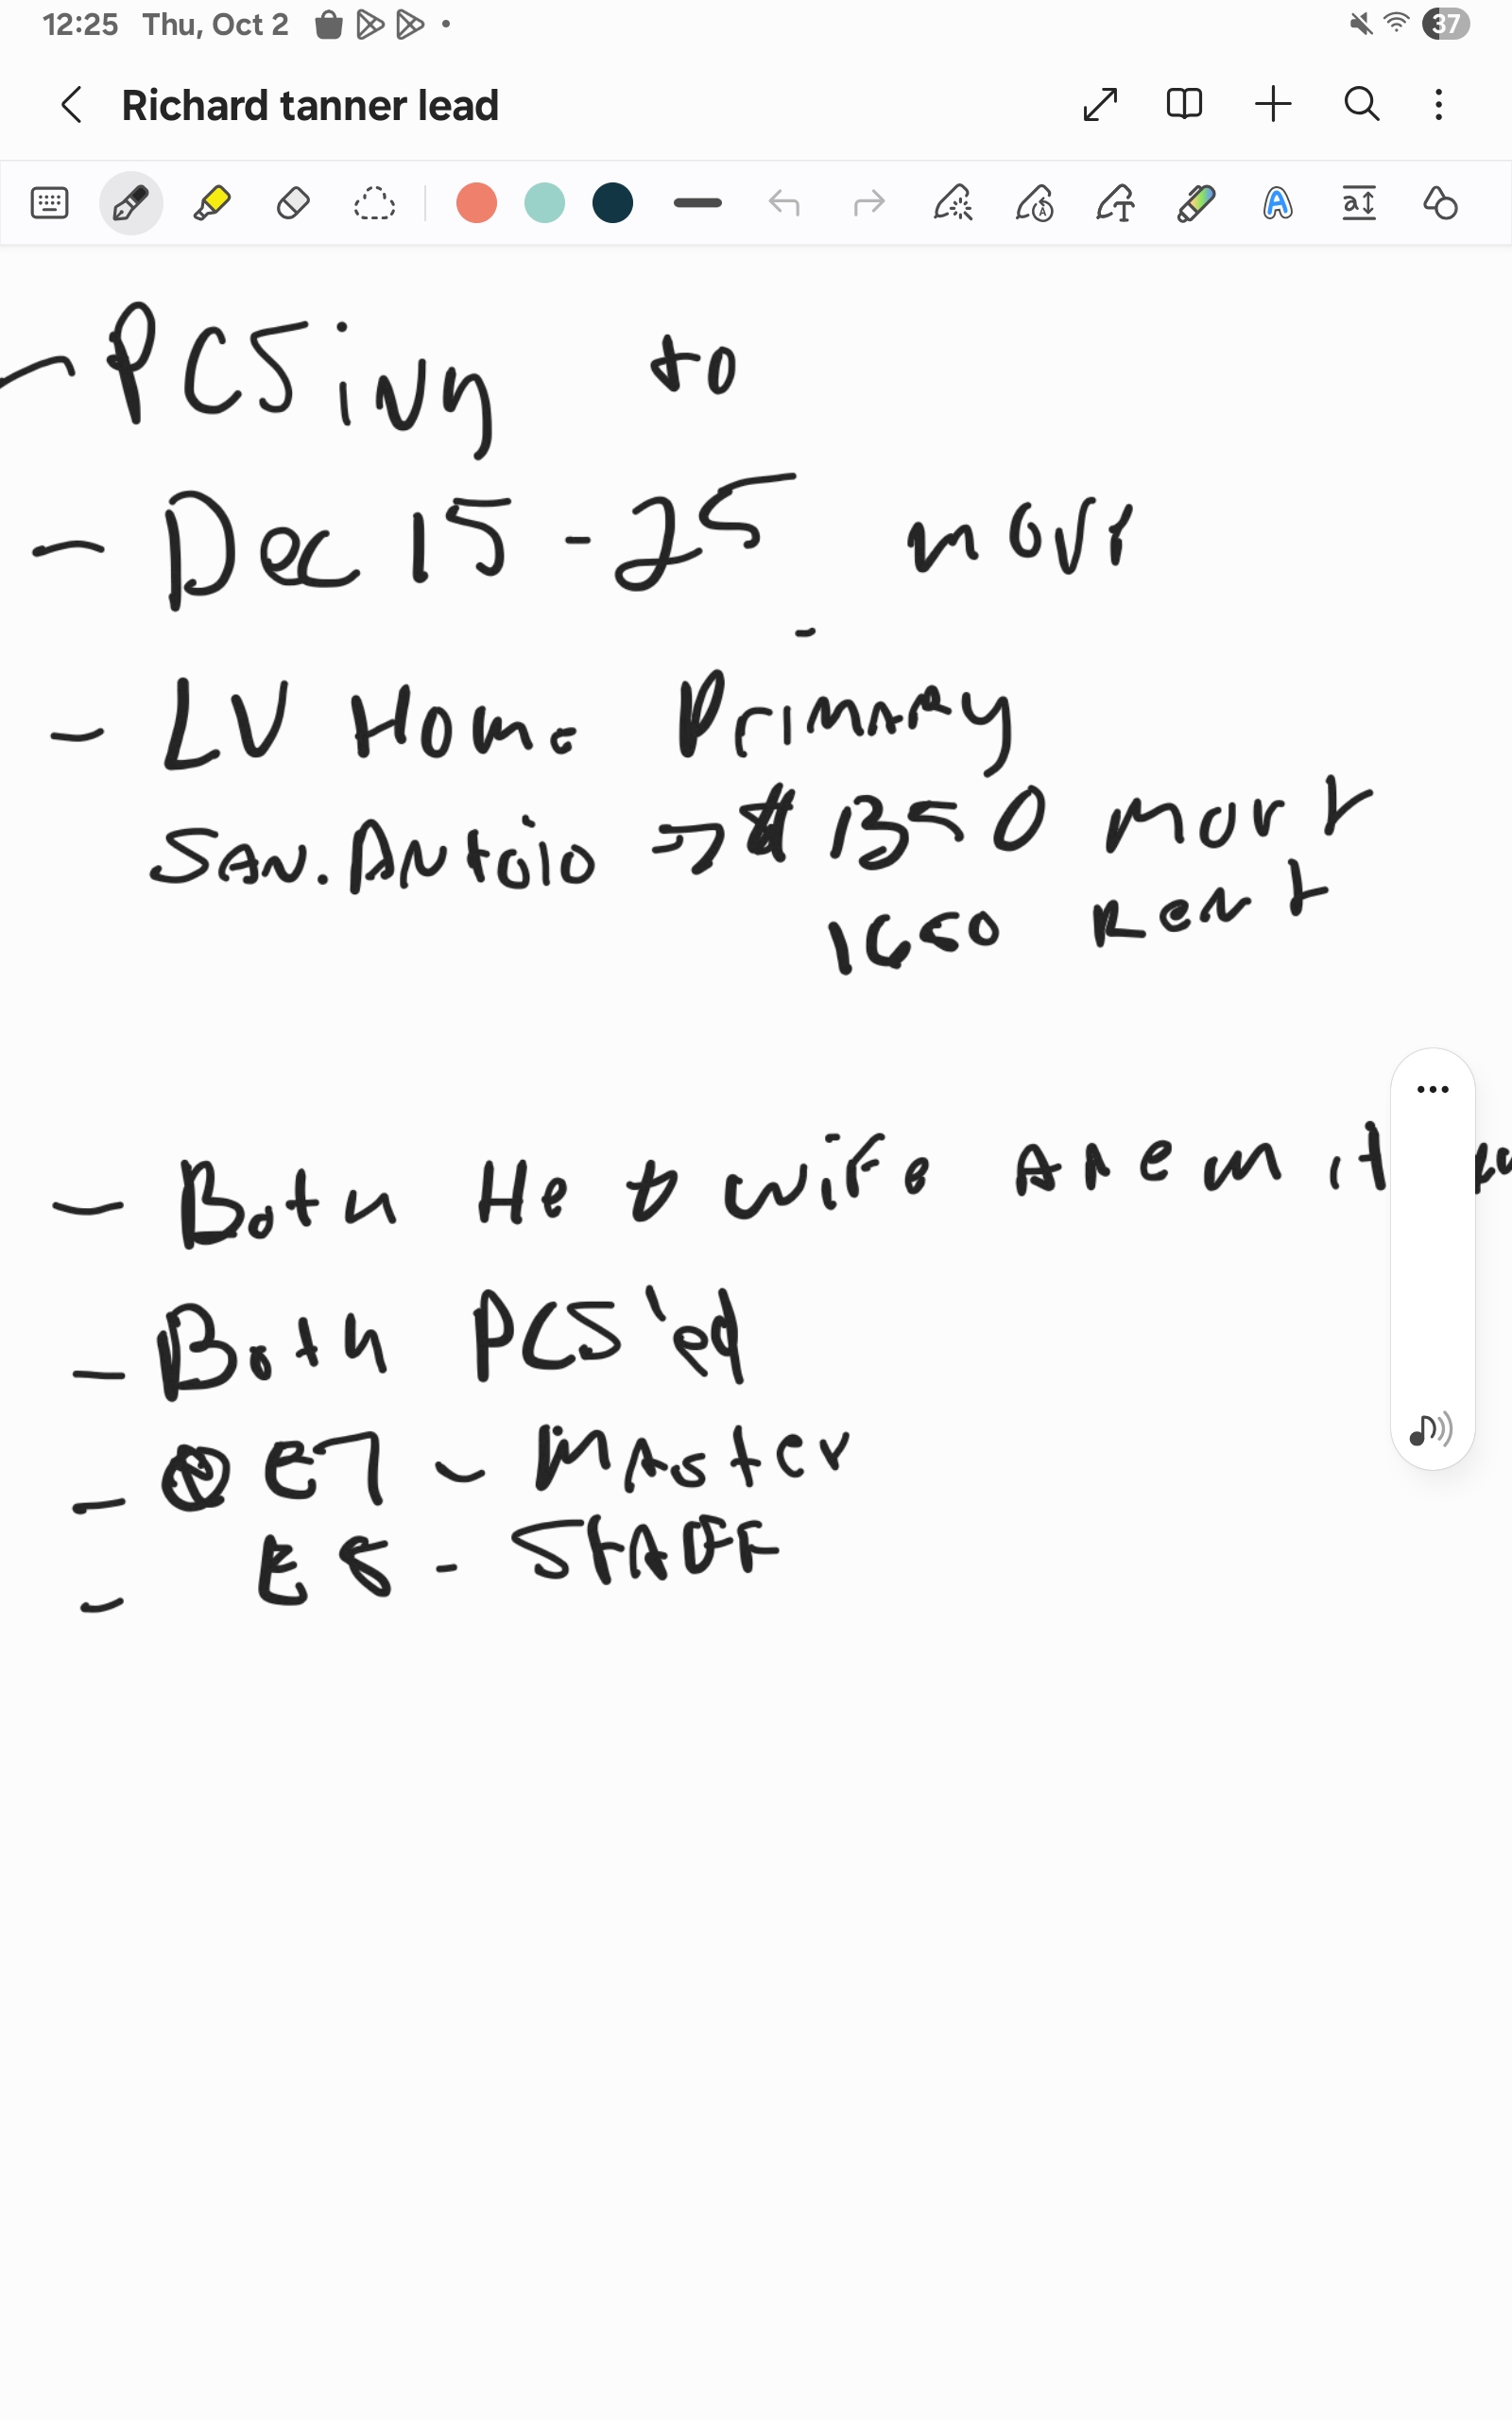 12:25 Thu, Oct 2
37
Richard tanner lead
- PCSing to
- Dec 15 - 25 move
- LV Home Primary
San. Antoio → $ 1350 mort
1650 Rent
- Both He & wife Are
- Both PCS'ed
- E7 - Master
- E8 - Staff